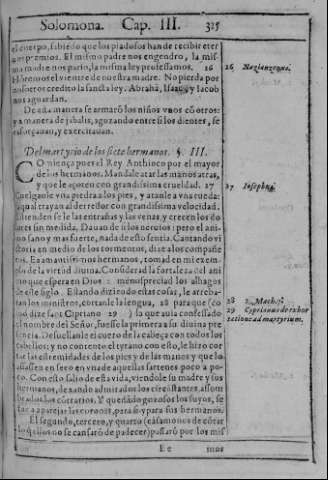 Solomona. Cap. III. 325
el cuerpo, sabiẽdo que los piadosos han de recibir eter
nos premios. El mismo padre nos engendro, la mis-
ma madre nos pario, la misma ley professamos. 26
Hõremos el vientre de nuestra madre. No pierda por
nosotros credito la sancta ley. Abrahã, Isaac, y Iacob
nos aguardan.
De esta manera se armarõ los niños vnos cõ otros:
y a manera de jabalis, agozando entre si los dientes, se
esforçauan, y exercitauan.
Del martyrio de los siete hermanos. §. III.
COmiença pues el Rey Anthioco por el mayor
de los hermanos. Mandale atar las manos atras,
y que le açoten con grandissima crueldad. 27
Cuelganle vna piedra a los pies, y atanle a vna rueda:
al derredor con grandissima velocidad.
Estienden se le las entrañas y las venas, y crecen los do
lores sin medida. Dauan de si los neruios: pero el ani-
mo sano y mas fuerte, nada de esto sentia. Cantando vi
ctoria en medio de los tormentos, dize a los compañe
ros. Ea amantissimos hermanos, tomad en mi exem-
plo de la virtud diuina. Considerad la fortaleza del ani
mo que espera en Dios: menospreciad los alhagos
de este siglo. Estando diziẽdo estas cosas, le arreba-
tan los ministros, cortanle la lengua, 28 para que (co
mo dize sant Cypriano 29) la que auia confessado
el nombre del Señor, fuesse la primera a su diuina pre
sencia. Dessuellanle el cuero de la cabeça con todos los
cabellos: y no contento el tyrano con esto, le hizo cor
tar las estremidades de los pies y de las manos y que lo
assassen en fuego en vna de aquellas sartenes poco a po-
co. Con esto salio de esta vida, viendole su madre y sus
hermanos, dexando admirados los circunstantes, assom
brados los cortarios. Y quedãdo gozosos los suyos, se
a aparejar las coronas, para si y para sus hermanos.
El segundo, tercero, y quarto (cãsamonos de cõtar
lo q̃ ellos no se cansarõ de padecer) passarõ por los mis
Ee mos
26 Nazianzeno.
27 Iosepho.
28 2. Mach. 7.
29 Cyprianus de exhor
tatione ad martyrium.